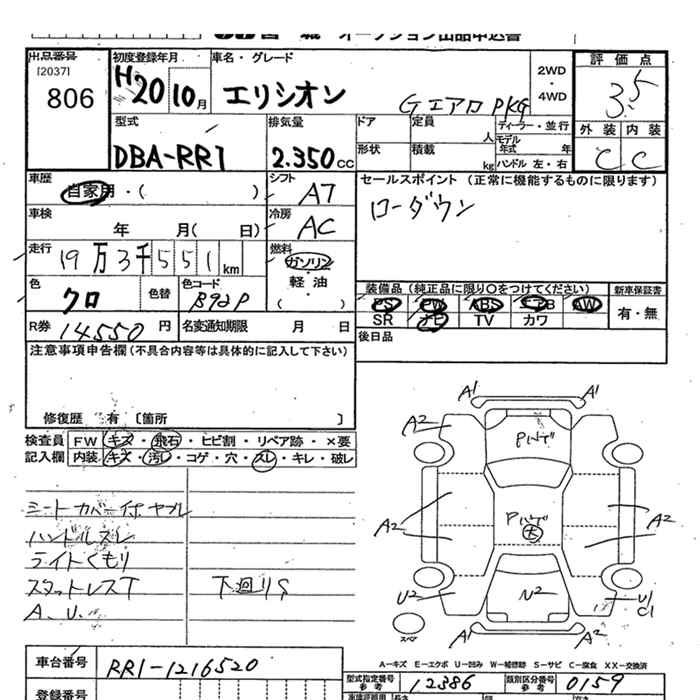 出品番号
[2037]
806
初度登録年月
H20 10月
車名・グレード
エリシオン
Gエアロ PKG
2WD
・
4WD
評価点
3.5
外装 内装
C C
型式
DBA-RR1
排気量
2.350 CC
ドア
形状
定員
人
積載
kg
ディーラー・並行
モデル年式 年
ハンドル 左・右
車歴
自家用・( )
シフト
A7
セールスポイント (正常に機能するものに限ります)
ローダウン
車検
年 月( 日)
冷房
AC
走行
19万3千551km
燃料
ガソリン
・
軽・油
・
( )
色
クロ
色替
色コード
B92P
装備品 (純正品に限り○をつけてください)
新車保証書
PS PW ABS エアB AW
SR ナビ TV カワ
有・無
R券
14550円
名変通知期限 月 日
後日品
注意事項申告欄 (不具合内容等は具体的に記入して下さい)
修復歴 有 〔箇所 〕
検査員 FW キズ・飛石・ヒビ割・リペア跡・×要
記入欄 内装 キズ・汚レ・コゲ・穴・スレ・キレ・破レ
シートカバー付ヤブレ
ハンドルスレ
ライトくもり
スタットレスT
A.U.
下廻りS
A1 A1
A2
Pハゲ
Pハゲ
A2
A2
U2
N2
U1
C1
A1
A2
スペア
A-キズ E-エクボ U-凹み W-補修跡 S-サビ C-腐食 XX-交換済
車台番号
RR1-1216520
型式指定番号
参考
12386
類別区分番号
参考
0159
登録番号